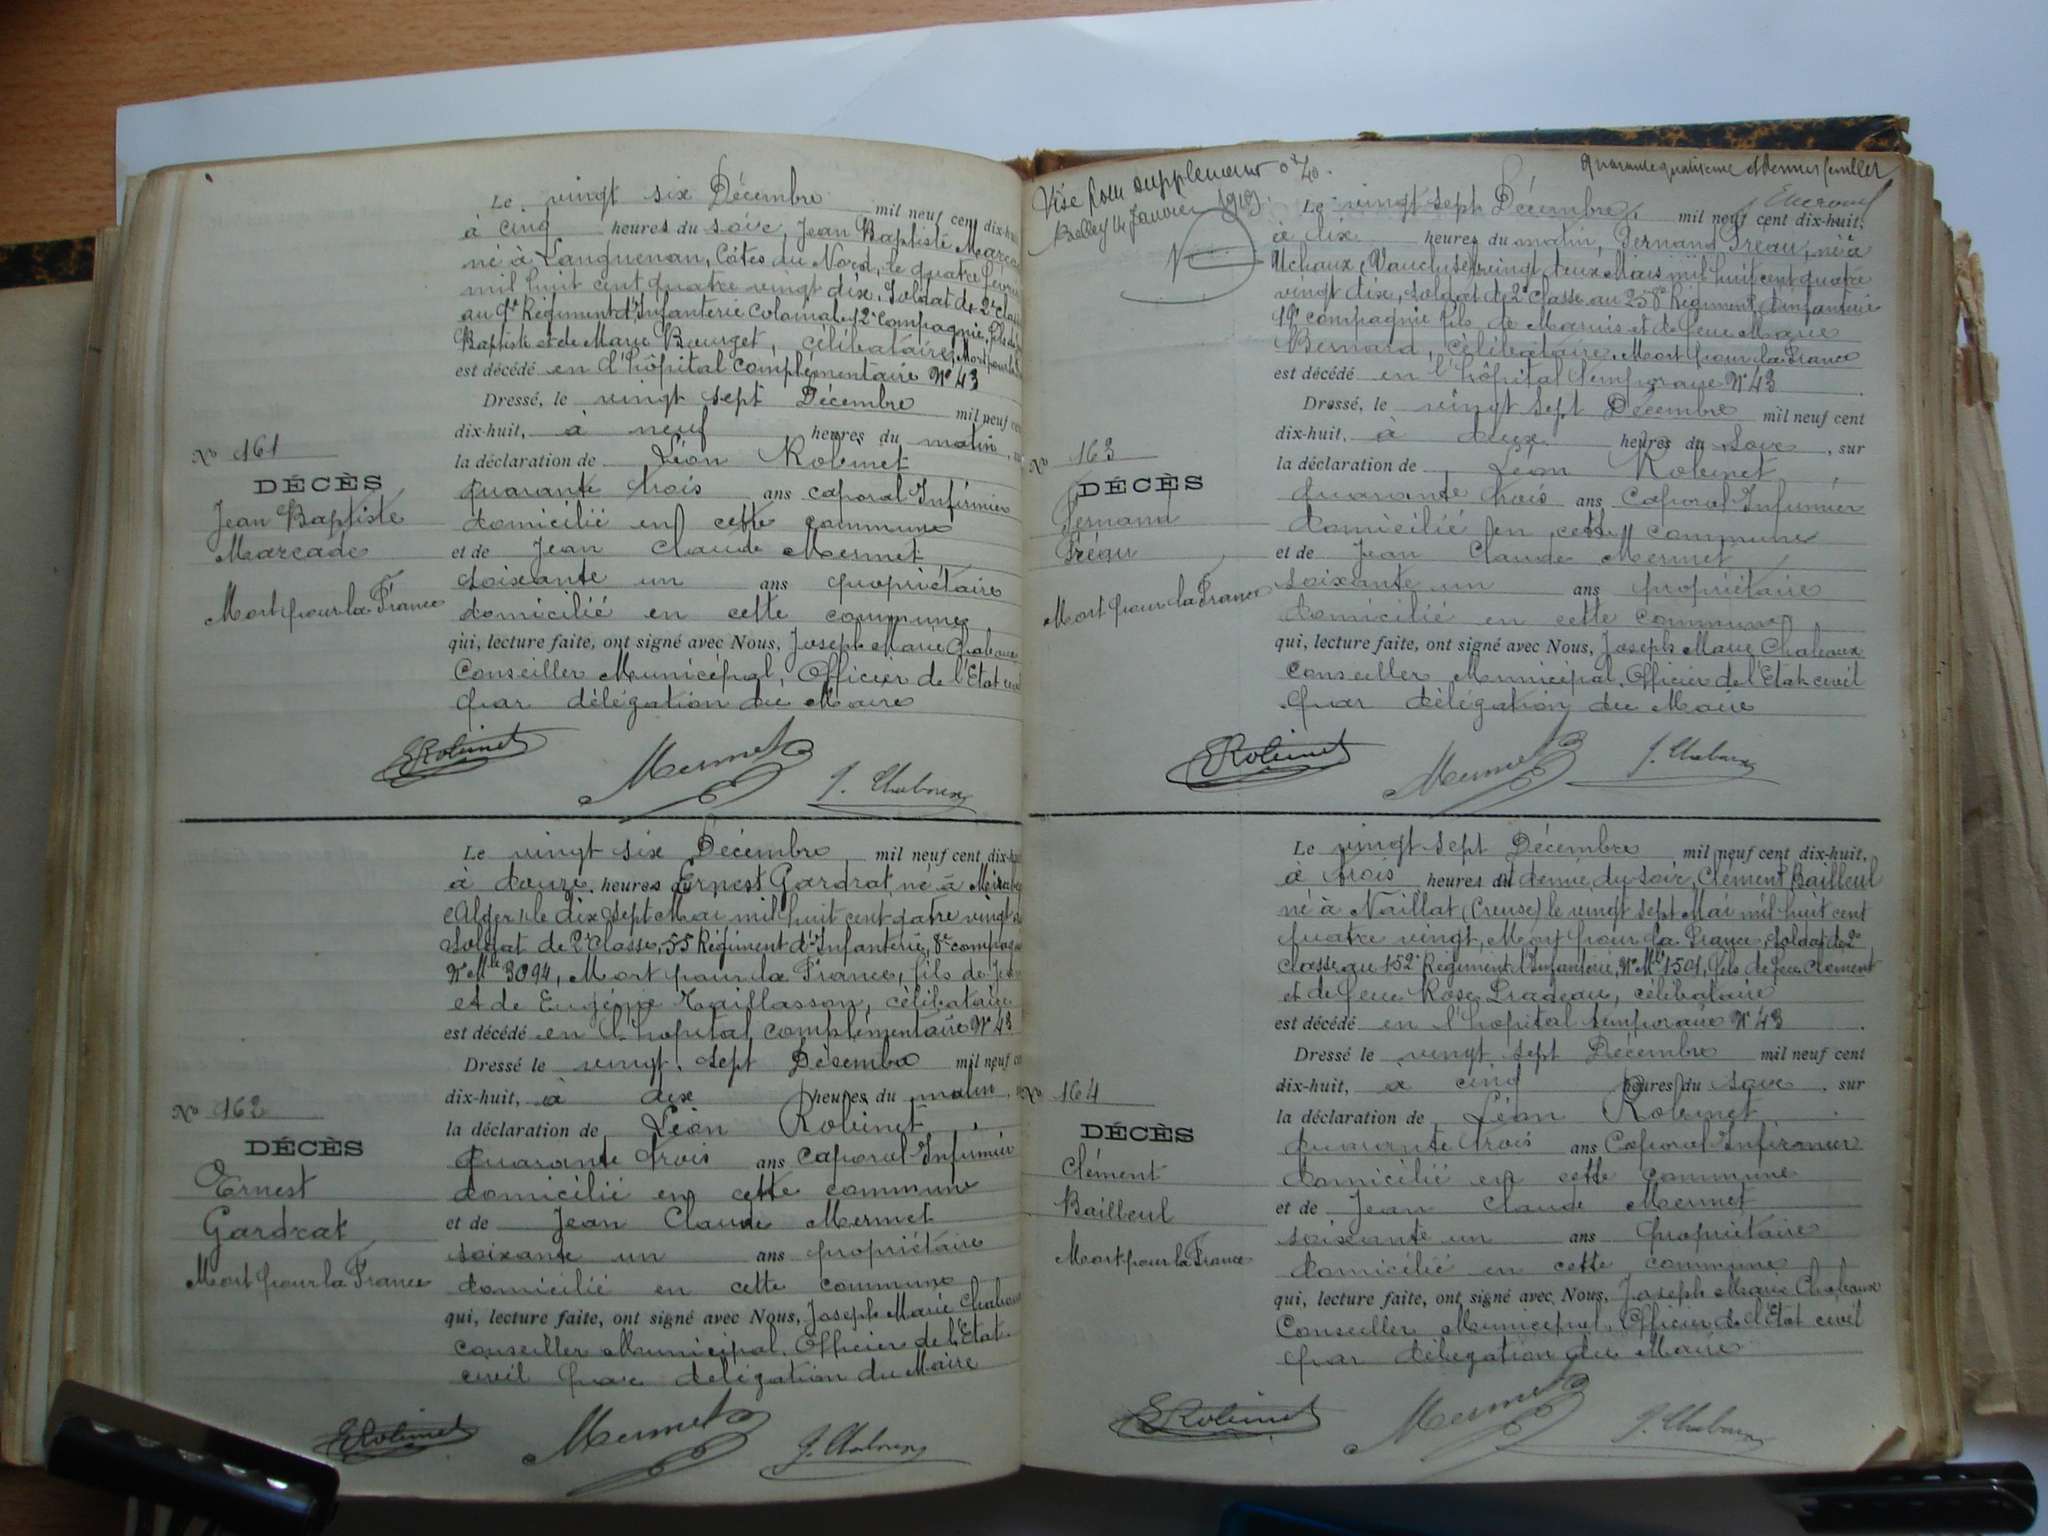 Le vingt six Décembre mil neuf cent dix-hu
à cinq heures du soir, Jean Baptiste Marca
né à Languenan, Côtes du Nord, le quatre Févri
mil huit cent quatre vingt dix, Soldat de 2e Clas
au Régiment d'Infanterie Coloniale, 2e Compagnie, fils de
Baptiste et de Marie Bourget, célibataire, Mort pour la
est décédé en l'hôpital complémentaire No 43
Dressé, le vingt sept Décembre mil neuf cen
dix-huit, à neuf heures du matin,
No 161
la déclaration de Léon Robinet
DÉCÈS
quarante trois ans caporal Infirmier
Jean Baptiste
domicilié en cette commune
Marcade
et de Jean Claude Mermet
soixante un ans propriétaire
Mort pour la France
domicilié en cette commune
qui, lecture faite, ont signé avec Nous, Joseph Marie Chaboux
Conseiller Municipal, Officier de l'Etat civil
par délégation du Maire
E Robinet Mermet J. Chaboux
Le vingt six Décembre mil neuf cent dix-hu
à douze heures Ernest Gardrat né à
(Alger) le dix sept Mai mil huit cent quatre vingt
Soldat de 2e Classe, 55 Régiment d'Infanterie, 8e compagn
No Mle 3094, Mort pour la France, fils de
et de Eugénie Taillasson, célibataire
est décédé en l'hopital complémentaire No 43
Dressé le vingt sept Décembre mil neuf ce
dix-huit, à dix heures du matin
No 162
la déclaration de Léon Robinet
DÉCÈS
quarante trois ans caporal Infirmier
Ernest
domicilié en cette commune
Gardrat
et de Jean Claude Mermet
soixante un ans propriétaire
Mort pour la France
domicilié en cette commune
qui, lecture faite, ont signé avec Nous, Joseph Marie Chaboux
conseiller Municipal, Officier de l'Etat
civil par délégation du Maire
E Robinet Mermet J. Chaboux
Visé pour supplément
Belley 14 Janvier 1919
Quarante quatrieme et dernier feuillet
Le vingt sept Décembre, mil neuf cent dix-huit,
à dix heures du matin, Fernand Fréau, né à
Uchaux (Vaucluse) le vingt deux Mars mil huit cent quatre
vingt dix, soldat de 2e classe au 258e Régiment d'infanterie
19e compagnie fils de Marius et de feue Marie
Bernard, célibataire, Mort pour la France
est décédé en l'hôpital temporaire No 43
Dressé, le vingt sept Décembre mil neuf cent
dix-huit, à deux heures du soir, sur
No 163
la déclaration de Léon Robinet
DÉCÈS
quarante trois ans Caporal Infirmier
Fernand
domicilié en cette commune
Fréau
et de Jean Claude Mermet
soixante un ans propriétaire
Mort pour la France
domicilié en cette commune
qui, lecture faite, ont signé avec Nous, Joseph Marie Chaboux
conseiller Municipal, Officier de l'Etat civil
par délégation du Maire
E Robinet Mermet J. Chaboux
Le vingt sept Décembre mil neuf cent dix-huit,
à trois heures et demie du soir, Clément Bailleul
né à Naillat (Creuse) le vingt sept Mai mil huit cent
quatre vingt, Mort pour la France, soldat de 2e
classe au 152e Régiment d'Infanterie, No Mle 1501, fils de feu Clément
et de feue Rose Pradeau, célibataire
est décédé en l'hopital temporaire No 43
Dressé le vingt sept Décembre mil neuf cent
dix-huit, à cinq heures du soir, sur
No 164
la déclaration de Léon Robinet
DÉCÈS
quarante trois ans Caporal Infirmier
Clément
domicilié en cette commune
Bailleul
et de Jean Claude Mermet
soixante un ans propriétaire
Mort pour la France
domicilié en cette commune
qui, lecture faite, ont signé avec Nous, Joseph Marie Chaboux
Conseiller Municipal, Officier de l'Etat civil
par délégation du Maire
E Robinet Mermet J. Chaboux